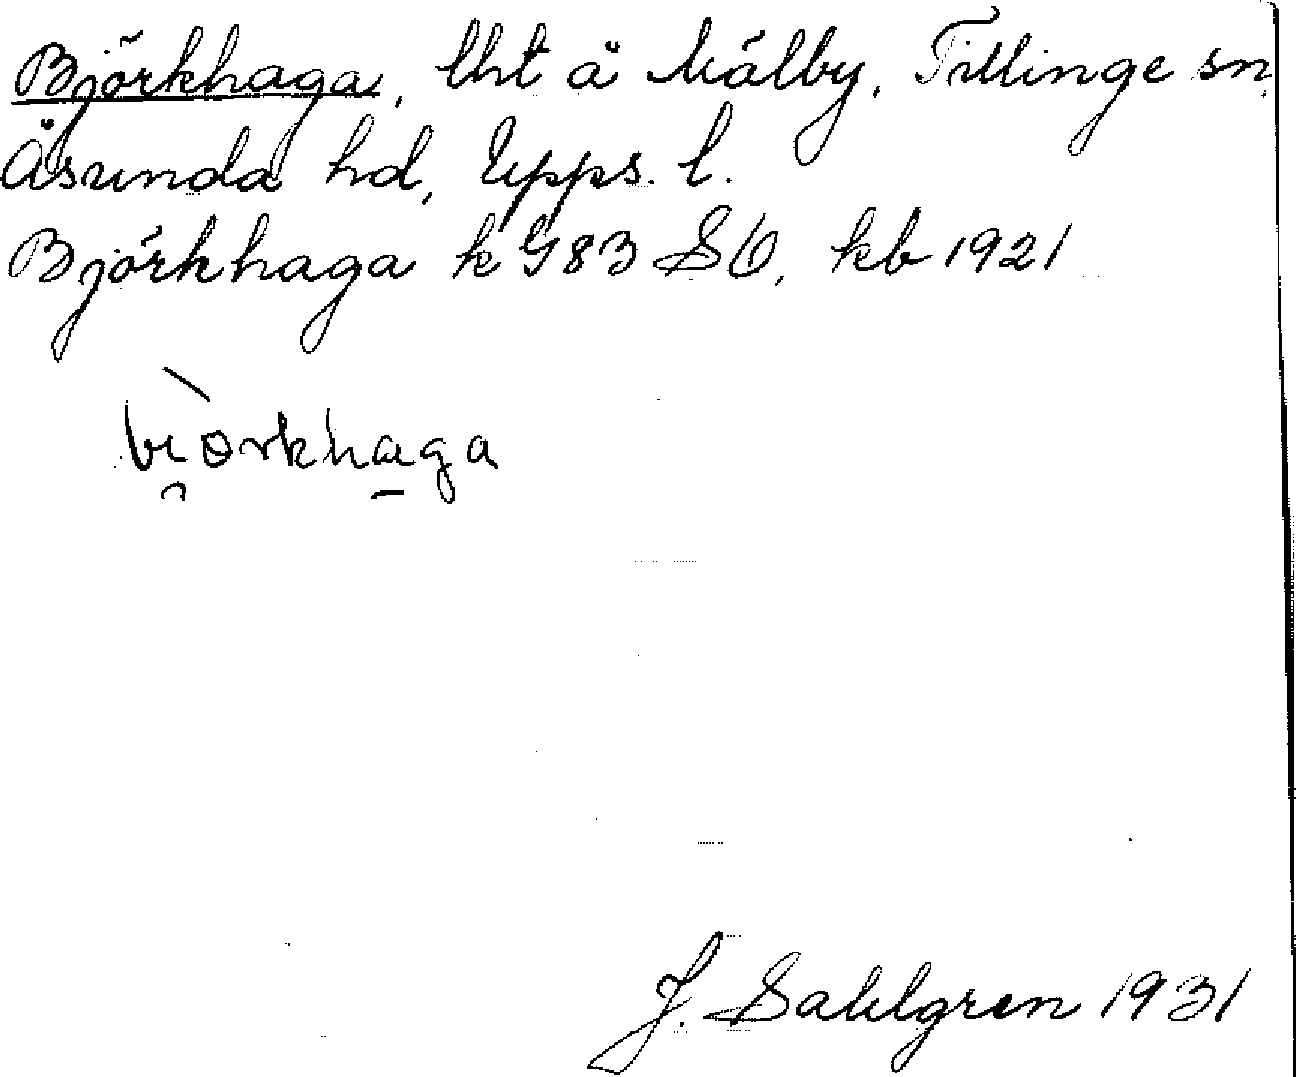 Björkhaga, lht å Målby, Tillinge sn,
Åsunda hd, Upps. l.
Björkhaga k G83 SÖ, kb 1921
bi̯òrkha̱ga
J. Sahlgren 1931